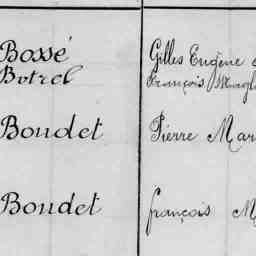 Bossé Gilles Eugène
Botrel François
Boudet Pierre Mar
Boudet françois M